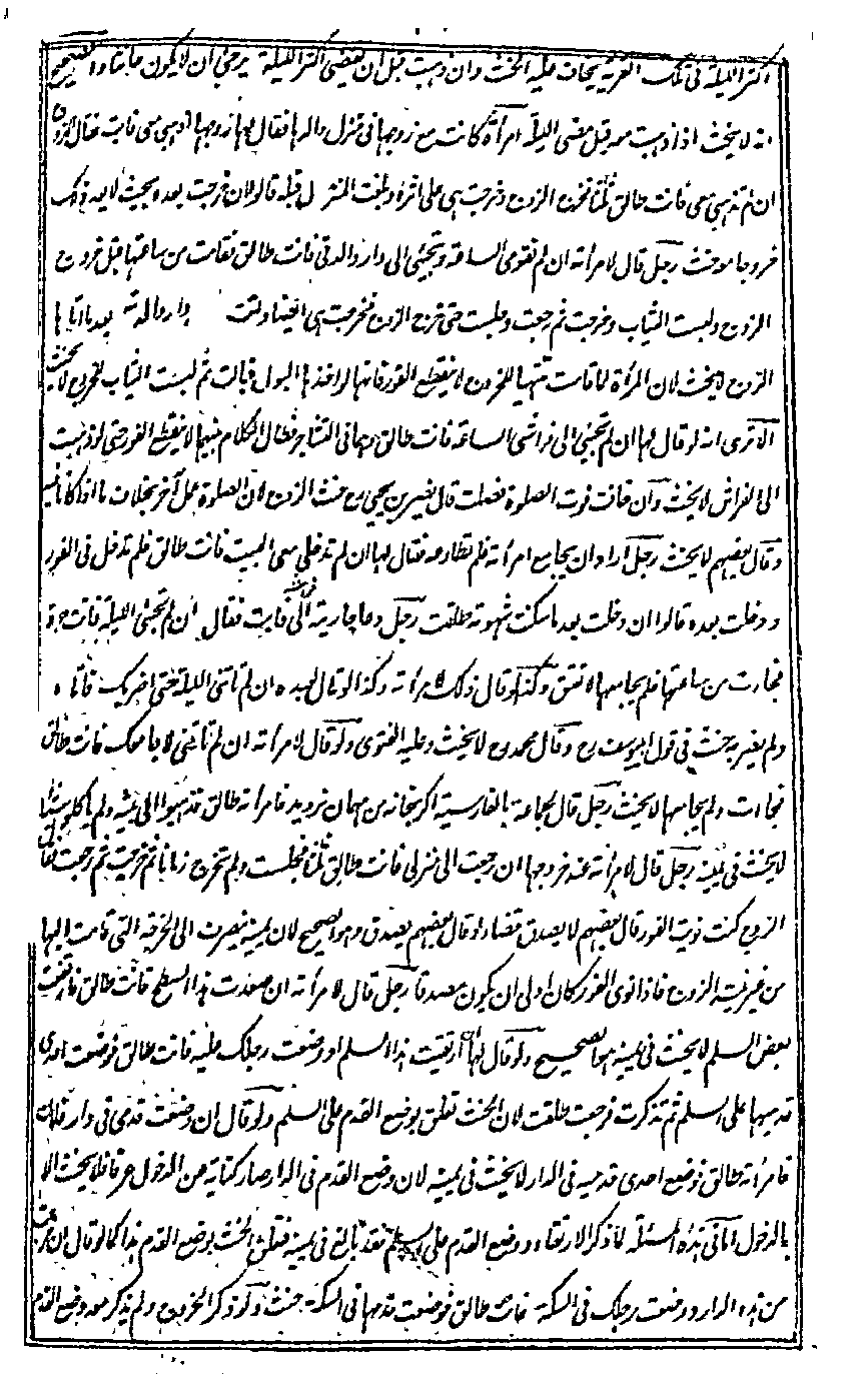 اكثر الليلة فى تلك القرية يخاف عليه الحنث وان ذهبت قبل ان يمضى اكثر الليلة يرجى ان لا يكون حانثا والصحيح
انه لا يحنث اذا ذهبت معه قبل مضى الليلة امرأة كانت مع زوجها فى منزل والدها فقال لها زوجها اذهبى معى فابت فقال الزوج
ان لم تذهبى معى فانت طالق ثلثا فخرج الزوج وخرجت هى على اثره وبلغت المنزل قبله قالوا ان خرجت بعده بحيث لا يعد ذلك
خروجا معه حنث رجل قال لامرأته ان لم تقومى الساعة وتجيئى الى دار والدتى فانت طالق فقامت من ساعتها قبل خروج
الزوج ولبست الثياب وخرجت ثم رجعت وجلست حتى خرج الزوج فخرجت هى ايضا واتت دار والدته بعد ما اتاها
الزوج لا يحنث لان المرأة ما دامت تتهيأ للخروج لا ينقطع الفور فانها لو اخذها البول فبالت ثم لبست الثياب للخروج لا يحنث
الا ترى انه لو قال لها ان لم تجيئى الى فراشى الساعة فانت طالق وهما فى التشاجر فطال الكلام بينهما لا ينقطع الفور حتى لو ذهبت
الى الفراش لا يحنث وان خافت فوت الصلوة فصلت قال نصير بن يحيى رح حنث الزوج لان الصلوة عمل آخر بخلاف ما اذا كانا
وقال بعضهم لا يحنث رجل اراد ان يجامع امرأته فلم تطاوعه فقال لها ان لم تدخلى معى البيت فانت طالق فلم تدخل فى الفور
ودخلت بعده قالوا ان دخلت بعد ما سكنت شهوته طلقت رجل دعا جاريته الى فراشه فابت فقال ان لم تجيئى الليلة فانت حرة
فجاءت من ساعتها فلم يجامعها لا تعتق وكذا لو قال ذلك لامرأته وكذا لو قال لعبده ان لم تأتنى الليلة حتى اضربك فاتاه
ولم يضربه حنث فى قول ابى يوسف رح وقال محمد رح لا يحنث وعليه الفتوى ولو قال لامرأته ان لم تأتينى لاجامعك فانت طالق
فجاءت ولم يجامعها لا يحنث رجل قال لجماعة بالفارسية اكر بخانه من مهمان نرويد فامرأته طالق فذهبوا الى بيته ولم يأكلوا شيئا
لا يحنث فى يمينه رجل قال لامرأته عند خروجها ان رجعت الى منزلى فانت طالق ثلثا فجلست ولم تخرج زمانا ثم خرجت ثم رجعت فقال
الزوج كنت نويت الفور قال بعضهم لا يصدق قضاء وقال بعضهم يصدق وهو الصحيح لان يمينه ينصرف الى الخرجة التى قامت اليها
من غير نية الزوج فاذا نوى الفور كان اولى ان يكون مصدقا رجل قال لامرأته ان صعدت هذا السطح فانت طالق فارتقت
بعض السلم لا يحنث فى يمينه هو الصحيح ولو قال لها ان ارتقيت هذا السلم او وضعت رجلك عليه فانت طالق فوضعت احدى
قدميها على السلم ثم تذكرت فرجعت طلقت لان الحنث تعلق بوضع القدم على السلم ولو قال ان وضعت قدمى فى دار فلان
فامرأته طالق فوضع احدى قدميه فى الدار لا يحنث فى يمينه لان وضع القدم فى الدار صار كناية عن الدخول عرفا فلا يحنث الا
بالدخول اما فى هذه المسئلة لما ذكر الارتقاء ووضع القدم على السلم فقد بالغ فى يمينه فتعلق الحنث بوضع القدم هذا كما لو قال ان خرجت
من هذه الدار ووضعت رجلك فى السكة فانت طالق فوضعت قدمها فى السكة حنث ولو ذكر الخروج ولم يذكر معه وضع القدم